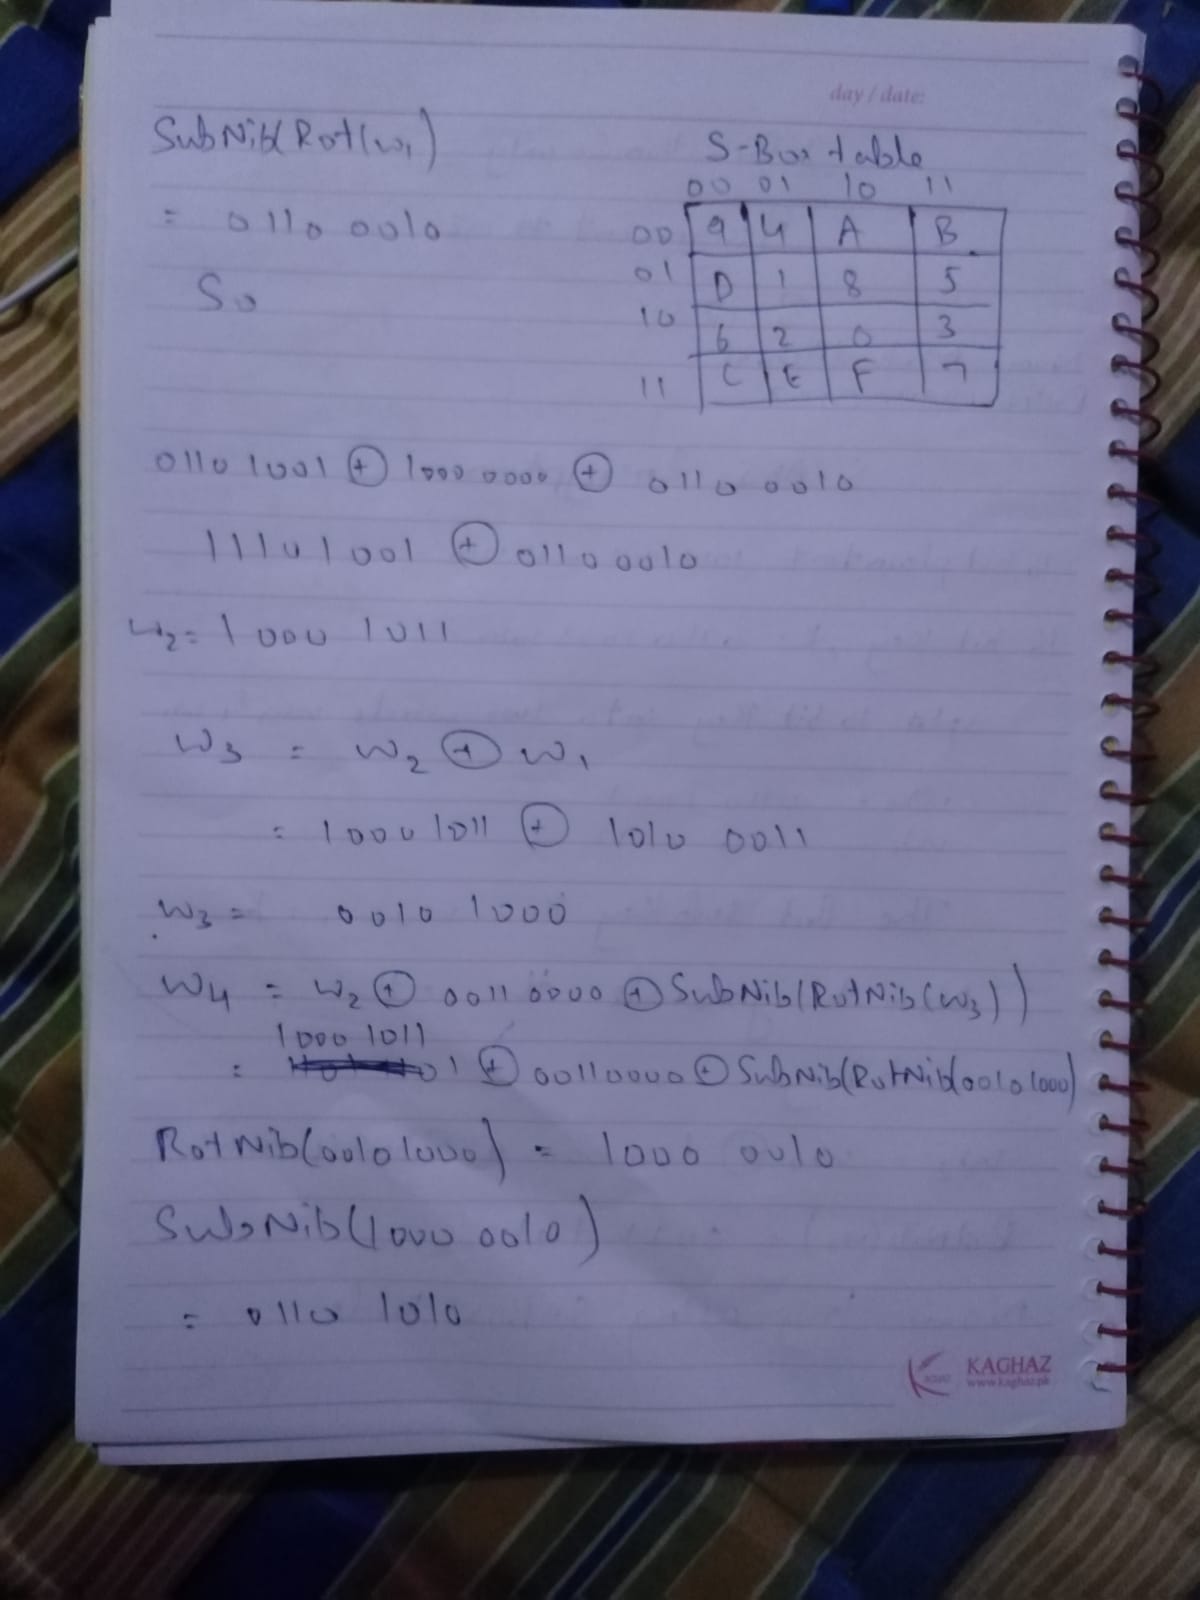 day / date:
SubNib(Rot(w1)
= 0110 0010
So
S-Box table
00 01 10 11
00 9 4 A B
01 D 1 8 5
10 6 2 0 3
11 C E F 7
0110 1001 ⊕ 1000 0000 ⊕ 0110 0010
1110 1001 ⊕ 0110 0010
w2 = 1000 1011
w3 = w2 ⊕ w1
= 1000 1011 ⊕ 1010 0011
w3 = 0010 1000
w4 = w2 ⊕ 0011 0000 ⊕ SubNib(RotNib(w3))
1000 1011
= 01 ⊕ 00110000 ⊕ SubNib(RotNib(0010 1000)
RotNib(0010 1000) = 1000 0010
SubNib(1000 0010)
= 0110 1010
KAGHAZ
www.kaghaz.pk